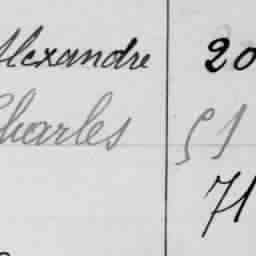 Alexandre 20
Charles 51
71